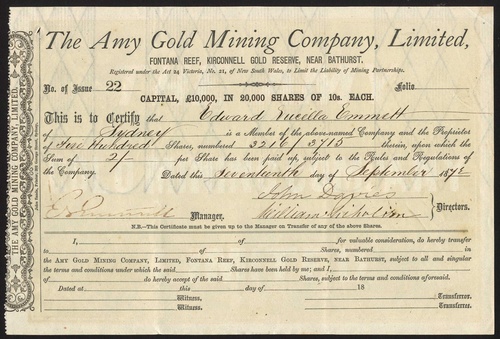 The Amy Gold Mining Company, Limited,
FONTANA REEF, KIRCONNELL GOLD RESERVE, NEAR BATHURST.
Registered under the Act 24 Victoria, No. 21, of New South Wales, to Limit the Liability of Mining Partnerships.
No. of Issue 22 Folio
CAPITAL, £10,000, IN 20,000 SHARES OF 10s. EACH.
This is to Certify that Edward Emmett
of Sydney is a Member of the above-named Company and the Proprietor
of Five Hundred Shares, numbered 3216/3715 therein, upon which the
Sum of 2/ per Share has been paid up, subject to the Rules and Regulations of
the Company. Dated this Seventeenth day of September 1872
John Davies
Manager. William Nicholson Directors.
N.B.—This Certificate must be given up to the Manager on Transfer of any of the above Shares.
I, of for valuable consideration, do hereby transfer
to of Shares, numbered in
the AMY GOLD MINING COMPANY, LIMITED, FONTANA REEF, KIRCONNELL GOLD RESERVE, NEAR BATHURST, subject to all and singular
the terms and conditions under which the said Shares have been held by me; and I,
of do hereby accept of the said Shares, subject to the terms and conditions aforesaid.
Dated at this day of 18
Witness. Transferror.
Witness. Transferree.
THE AMY GOLD MINING COMPANY, LIMITED.